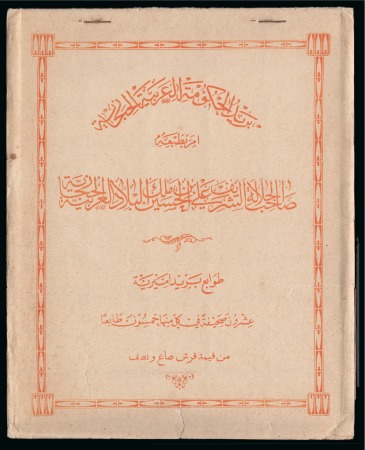 بريد الحكومة العربية الحجازية
امر بطبعه
صاحب الجلالة الشريف علي بن الحسين ملك البلاد العربية الحجازية
طوابع بريد اميرية
عشرون صحيفة في كل منها خمسون طابعا
من قيمة قرش صاغ ونصف